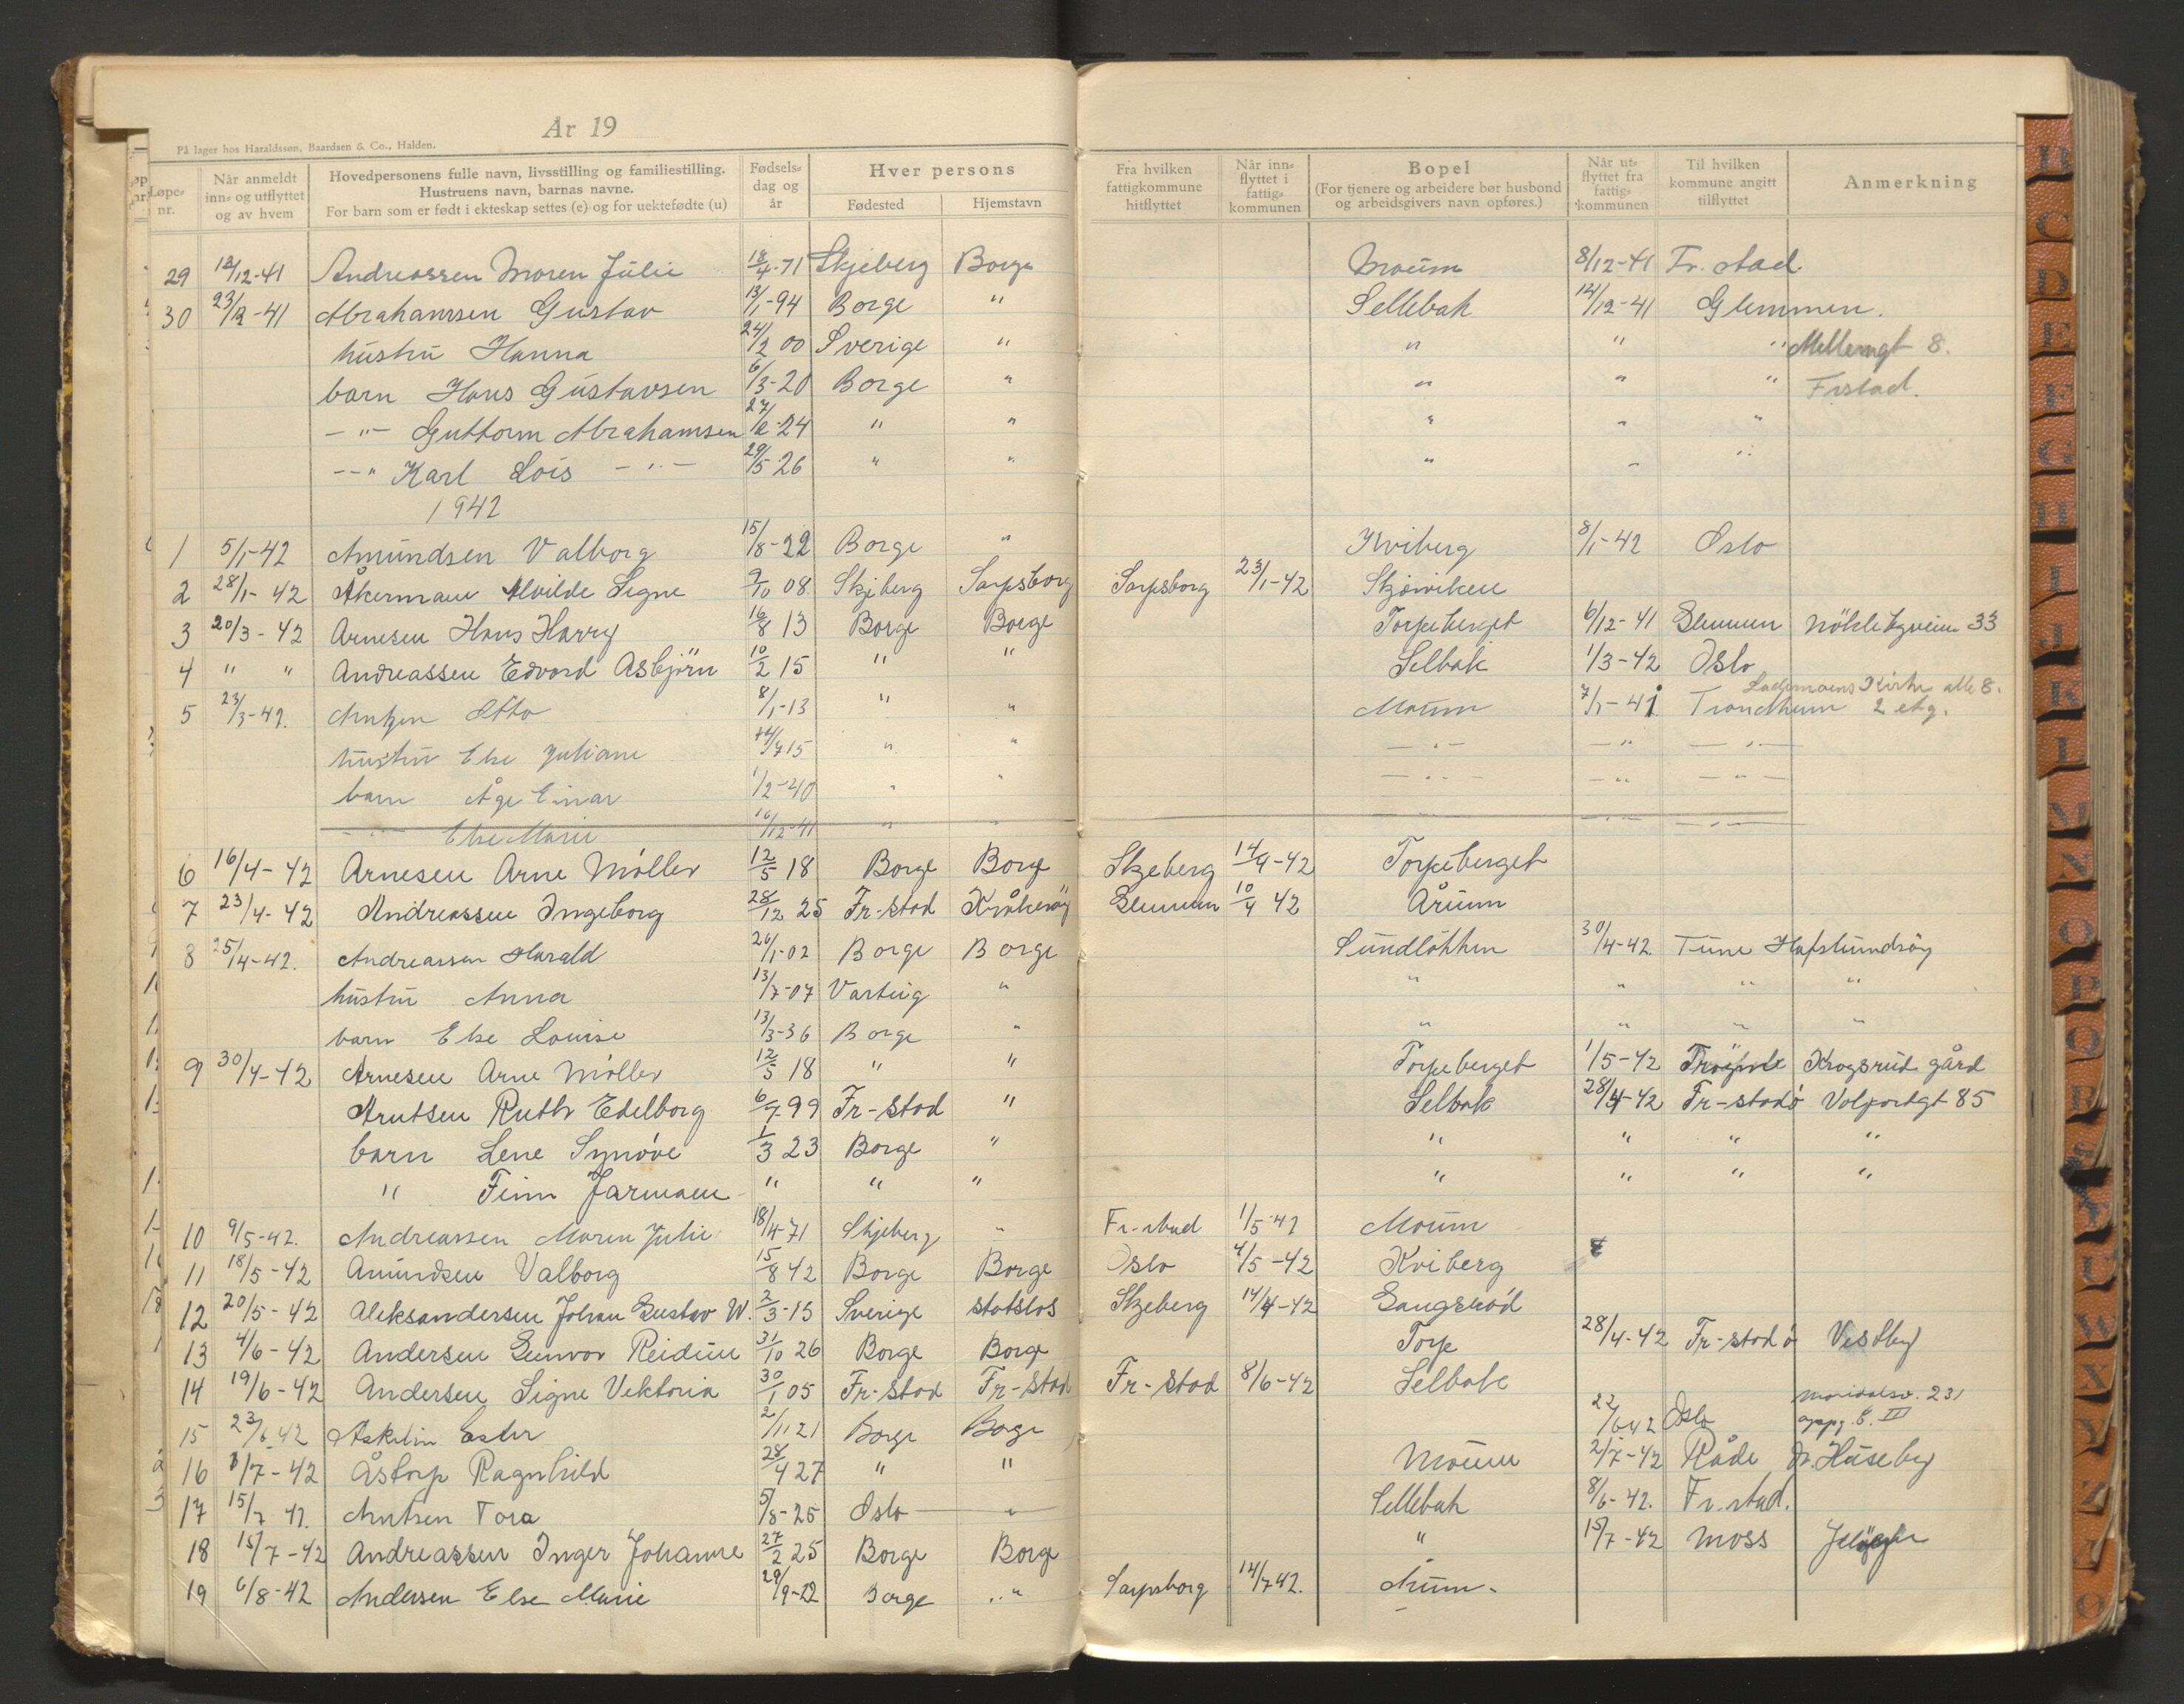 År 19
På lager hos Haraldssøn, Baardsen & Co., Halden.
Løpe-nr. Når anmeldt inn- og utflyttet og av hvem Hovedpersonens fulle navn, livsstilling og familiestilling. Hustruens navn, barnas navne. For barn som er født i ekteskap settes (e) og for uektefødte (u) Fødsels-dag og år Hver persons Fødested Hjemstavn Fra hvilken fattigkommune hitflyttet Når inn-flyttet i fattig-kommunen Bopel (For tjenere og arbeidere bør husbond og arbeidsgivers navn opføres.) Når ut-flyttet fra fattig-kommunen Til hvilken kommune angitt tilflyttet Anmerkning
29 12/12-41 Andreassen Maren Julie 18/4-71 Skjeberg Borge Moum 8/12-41 Fr. stad.
30 23/12-41 Abrahamsen Gustav 13/1-94 Borge " Sellebak 12/12-41 Glemmen.
hustru Hanna 24/2 00 Sverige " " " " Mellemgt 8.
barn Hans Gustavsen 6/3-20 Borge " " " " Frstad.
-"- Guttorm Abrahamsen 27/12-24 " " " " "
-"- Karl Lois -"- 29/5 26 " " " " "
1942
1 5/1-42 Amundsen Valborg 15/8-22 Borge " Kviberg 8/1-42 Oslo
2 28/1-42 Åkermann Alvilde Signe 9/10 08 Skjeberg Sarpsborg Sarpsborg 23/1-42 Skjærviken
3 20/3-42 Arnesen Hans Harry 16/8 13 Borge Borge Torpeberget 6/12-41 Glemmen 33
4 " " Andreassen Edvard Asbjörn 10/2 15 " " Selbak 1/3-42 Oslo
5 23/3-42. Arntzen Otto 8/1-13 " " Moum 7/1-41 Trondheim Lademoens Kirke alle 8. 2 etg.
hustru Else Juliane 14/4 15 " " -"- -"- -"-
barn Åge Einar 1/2-40 " " -"- -"- -"-
-"- Else Marie 16/12-41 " " -"- -"-
6 16/4-42 Arnesen Arne Møller 12/5 18 Borge Borge Skjeberg 14/4-42 Torpeberget
7 23/4-42 Andreassen Ingeborg 28/12 25 Fr-stad Kråkeröy Glemmen 10/4 42 Årum
8 25/4-42. Andreassen Harald 26/1-02 Borge Borge Sundløkken 30/4-42. Tune Hafslundsøy
hustru Anna 13/7-07 Varteig " " " " "
barn Else Louise 13/3-36 Borge " " " " "
9 30/4-42 Arnesen Arne Møller 12/5 18 " " Torpeberget 1/5-42 Trøgstad Krogsrud gård
Arntsen Ruth Edelborg 6/7 99 Fr-stad " Selbak 28/4-42 Fr-stad ø Volsportgt 85
barn Lene Synøve 1/3 23 Borge " " " " "
" Finn Jarmann " " " " " " "
10 9/5-42. Andreassen Maren Julie 18/4-71 Skjeberg " Fr-stad 1/5-42 Moum
11 18/5-42 Amundsen Valborg 15/8 42 Borge Borge Oslo 4/5-42 Kviberg
12 20/5-42 Aleksandersen Johan Gustav W. 2/3-15 Sverige statsløs Skjeberg 14/4-42 Gangsrød
13 4/6-42 Andersen Gunvor Reidun 31/10 26 Borge Borge Torp 28/4-42 Fr-stad ø Vestby
14 19/6-42 Andersen Signe Vektoria 30/1 05 Fr-stad Fr-stad Fr-stad 8/6-42 Selbak
15 23/6 42 Askelin Ester 2/11 21 Borge Borge 22/6 42 Oslo Maridalsv. 231 oppg. B. III
16 8/7-42 Åstorp Ragnhild 28/4 27 " " Moum 2/7-42 Råde N. Huseby
17 15/7 42. Arntsen Tora 5/8-25 Oslo " Sellebak 8/6-42. Fr. stad.
18 15/7-42 Andreassen Inger Johanne 27/2 25 Borge Borge " 15/7-42 Moss
19 6/8-42 Andersen Else Marie 29/9-22 Borge " Sarpsborg 14/7 42. Årum.